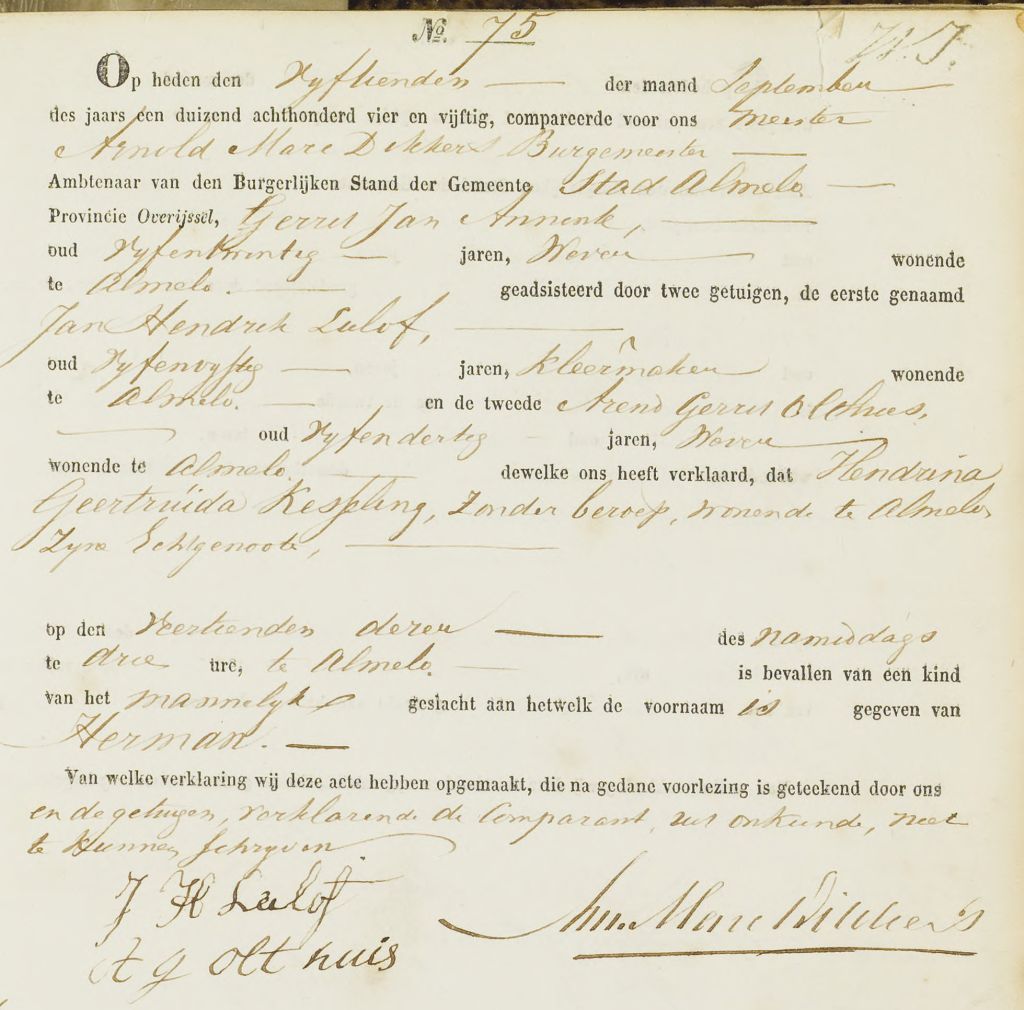 No. 75
Op heden den Vyftienden der maand September
des jaars een duizend achthonderd vier en vijftig, compareerde voor ons meester
Arnold Marc Dikkers Burgemeester
Ambtenaar van den Burgerlijken Stand der Gemeente Stad Almelo
Provincie Overijssel, Gerrit Jan Annink,
oud Vyfentwintig jaren, Wever wonende
te Almelo. geadsisteerd door twee getuigen, de eerste genaamd
Jan Hendrik Lulof,
oud Vyfenvyftig jaren, Kleermaker wonende
te Almelo. en de tweede Arend Gerrit Olthuis,
oud Vyfendertig jaren, Wever
wonende te Almelo. dewelke ons heeft verklaard, dat Hendrina
Geertruida Kesseling, Zonder beroep, wonende te Almelo,
Zyne Echtgenoote,
op den Veertienden dezer des namiddags
te drie ure, te Almelo. is bevallen van een kind
van het mannelyk geslacht aan hetwelk de voornaam is gegeven van
Herman.
Van welke verklaring wij deze acte hebben opgemaakt, die na gedane voorlezing is geteekend door ons
en de getuigen, verklarende de Comparant, uit onkunde, niet
te kunnen schryven
J H Lulof
A G Olthuis
Arn. Marc Dikkers